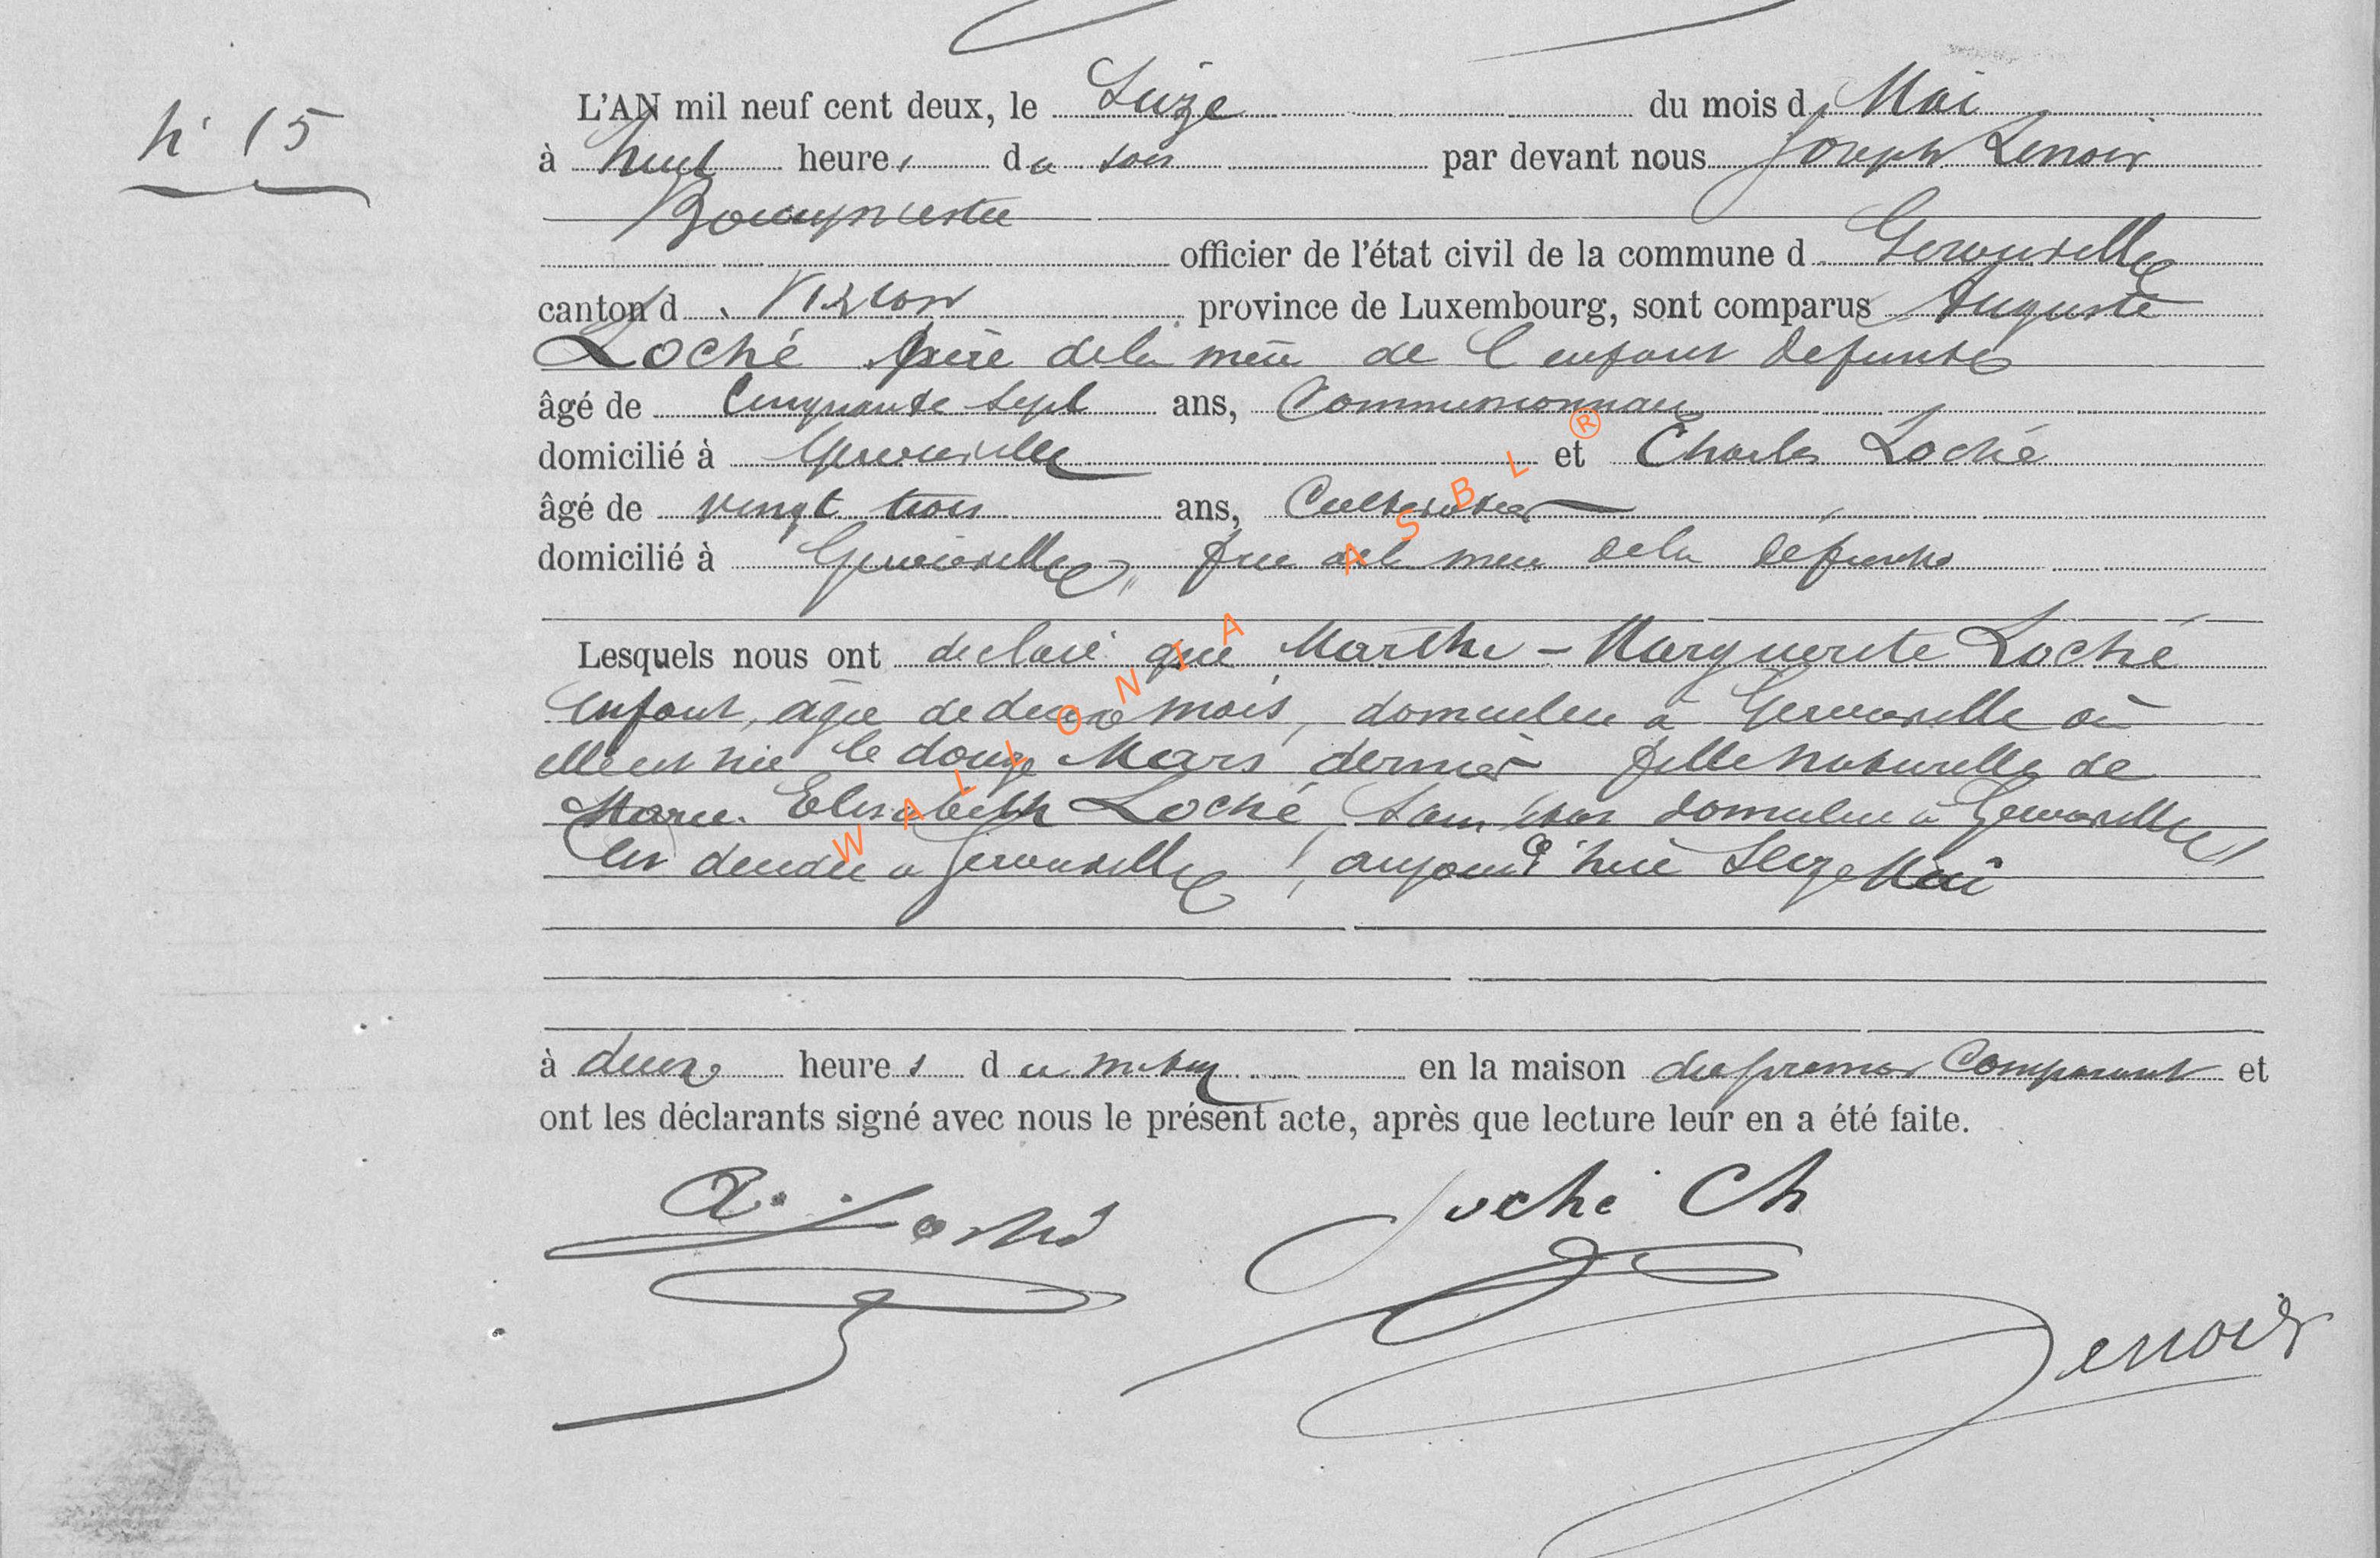 N° 15
L'AN mil neuf cent deux, le Seize du mois d Mai
à huit heures du soir par devant nous Joseph Lenoir
Bourgmestre
officier de l'état civil de la commune d Gerouville
canton d Virton province de Luxembourg, sont comparus Auguste
Loché père de la mère de l enfant defunte
âgé de Cinquante sept ans, Commissionnaire
domicilié à Gerouville et Charles Loché
âgé de vingt trois ans, Cultivateur
domicilié à Gerouville, frère de la mère de la défunte
Lesquels nous ont declaré que Marthe - Marguerite Loché
Enfant, agée de deux mois, domiciliée à Gerouville où
elle est née le douze Mars dernier fille naturelle de
Marie Elisabeth Loché, domiciliée à Gerouville
Est decedée a Gerouville, aujourd'hui Seize Mai
à deux heures du matin en la maison du premier Comparant et
ont les déclarants signé avec nous le présent acte, après que lecture leur en a été faite.
A. Loché Loché Ch
Lenoir
WALLONIA ASBL ®